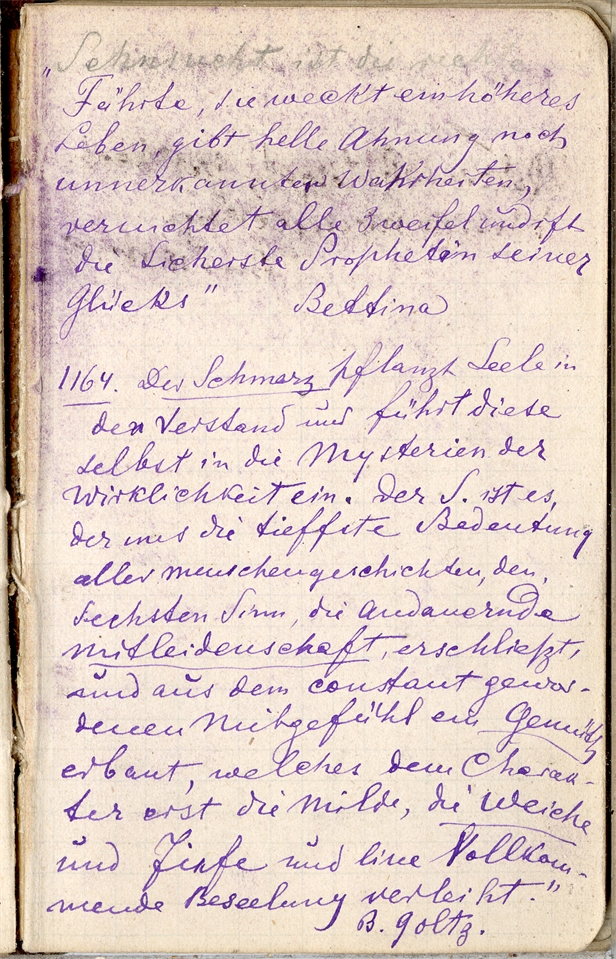 Sehnsucht ist die rechte
„Fährte, sie weckt ein höheres
Leben, gibt helle Ahnung noch
unnerkannter Wahrheiten,
vernichtet alle Zweifel und ist
die sicherste Prophetin seiner
Glücks" Bettina
1164. Der Schmerz pflanzt Seele in
den Verstand und führt diese
selbst in die Mysterien der
Wirklichkeit ein. Der S. ist es,
der uns die tieffste Bedeutung
aller menschengeschichten, den
sechsten Sinn, die andauernde
mitleidenschaft, erschließt,
und aus dem constant gewor-
denen Mitgefühl ein Gemüth
erbaut, welches dem Charak-
ter erst die Milde, die Weiche
und Tiefe und eine Vollkom-
mende Beseelung verleiht."
B. Goltz.